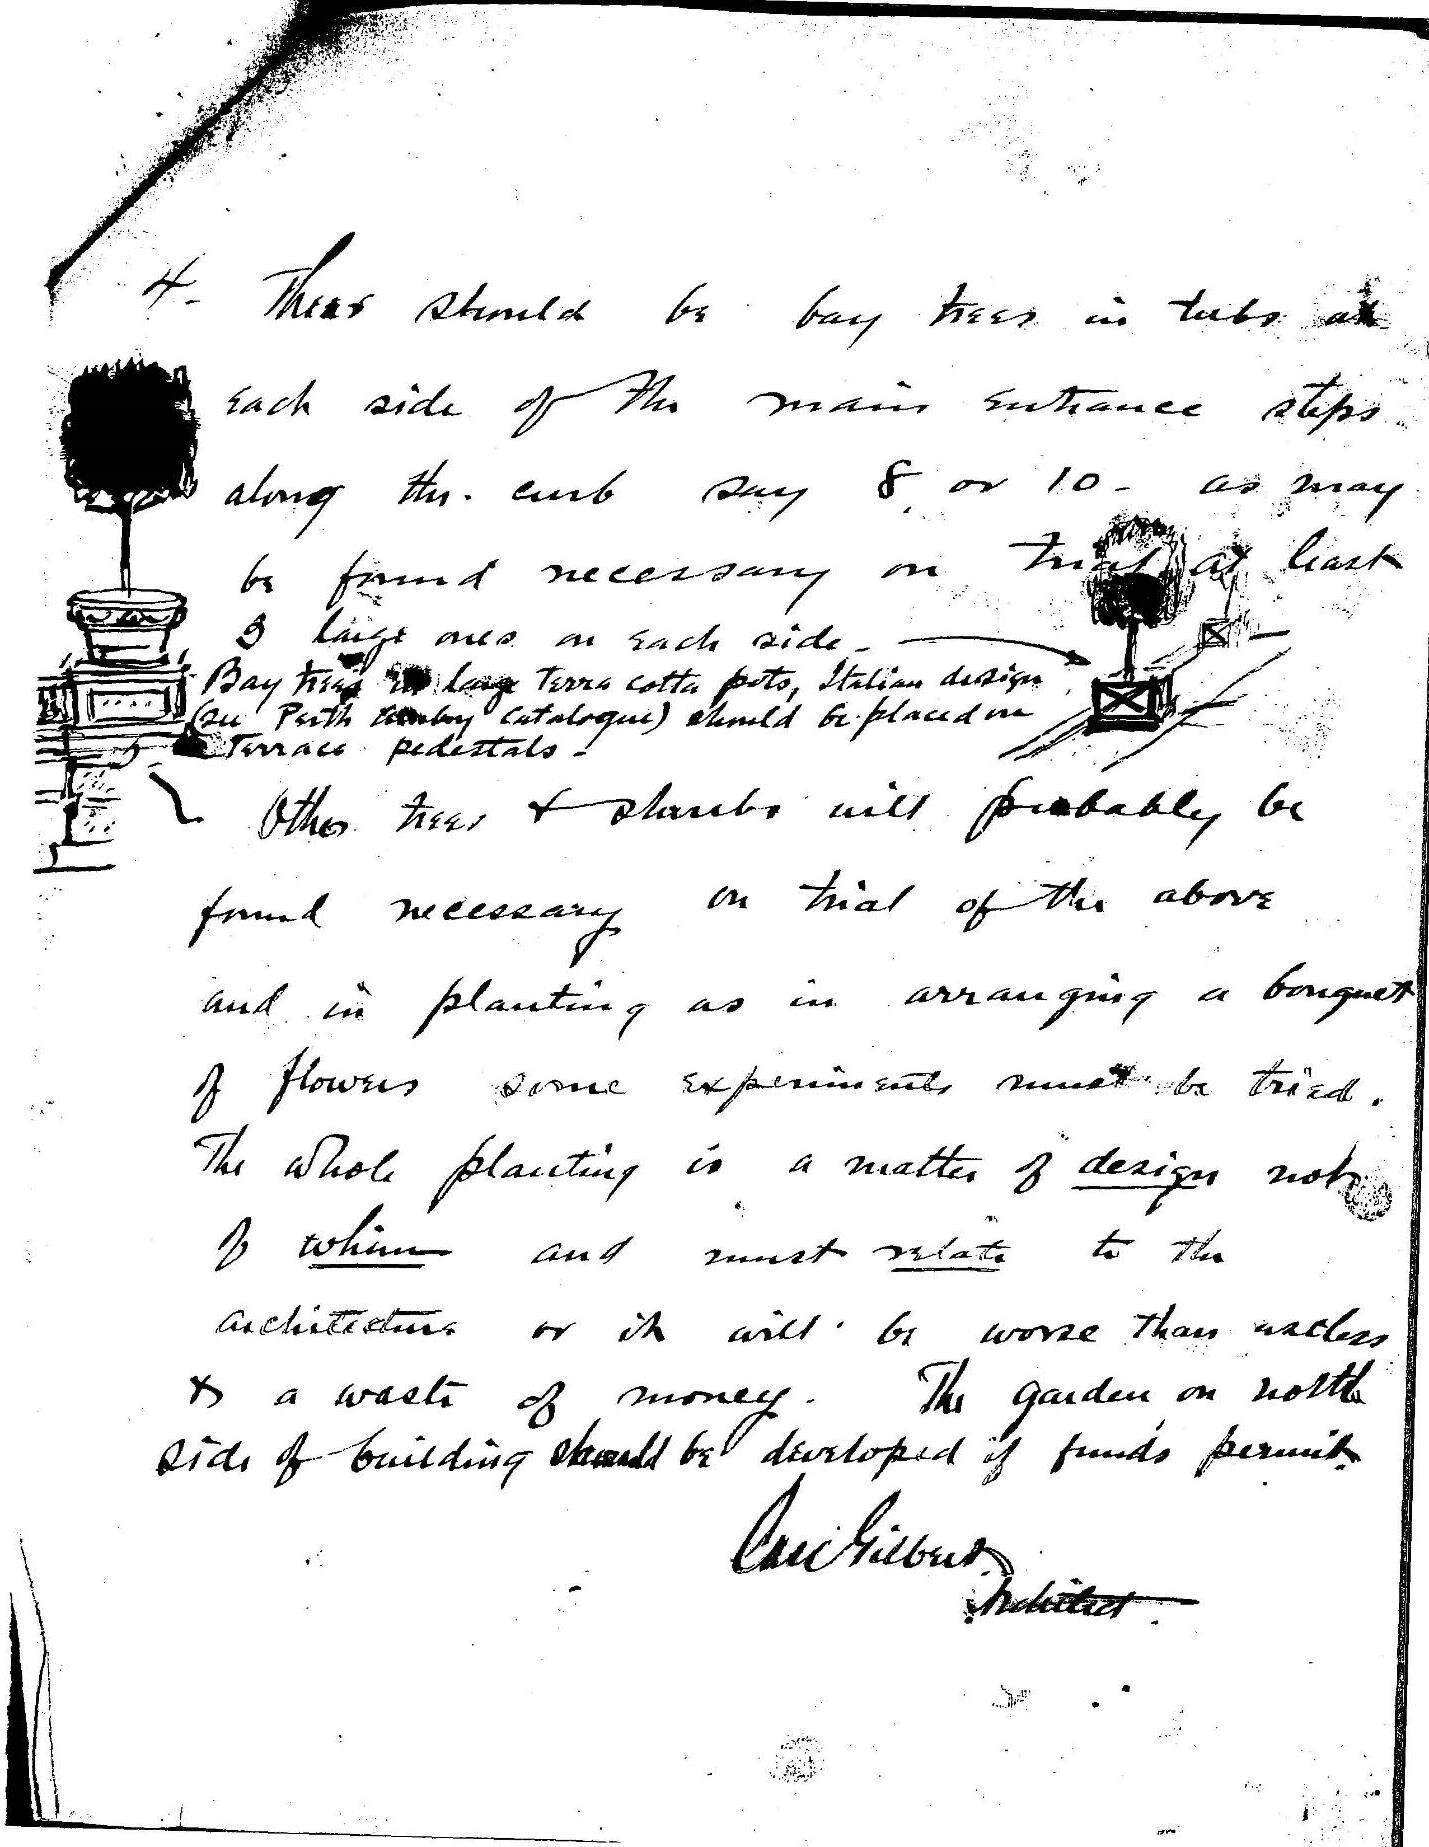 4. There should be bay trees in tubs at
each side of the main entrance steps
along the curb say 8 or 10 - as may
be found necessary on trial at least
large ones on each side -
Bay trees in large Terra cotta pots, Italian design
(see Perth Amboy Catalogue) should be placed on
Terrace pedestals -
Other trees & shrubs will probably be
found necessary on trial of the above
and in planting as in arranging a bouquet
of flowers some experiments must be tried.
The whole planting is a matter of design not
of whim and must relate to the
architecture or it will be worse than useless
& a waste of money. The garden on north
side of building should be developed if funds permit.
Cass Gilbert
Architect.